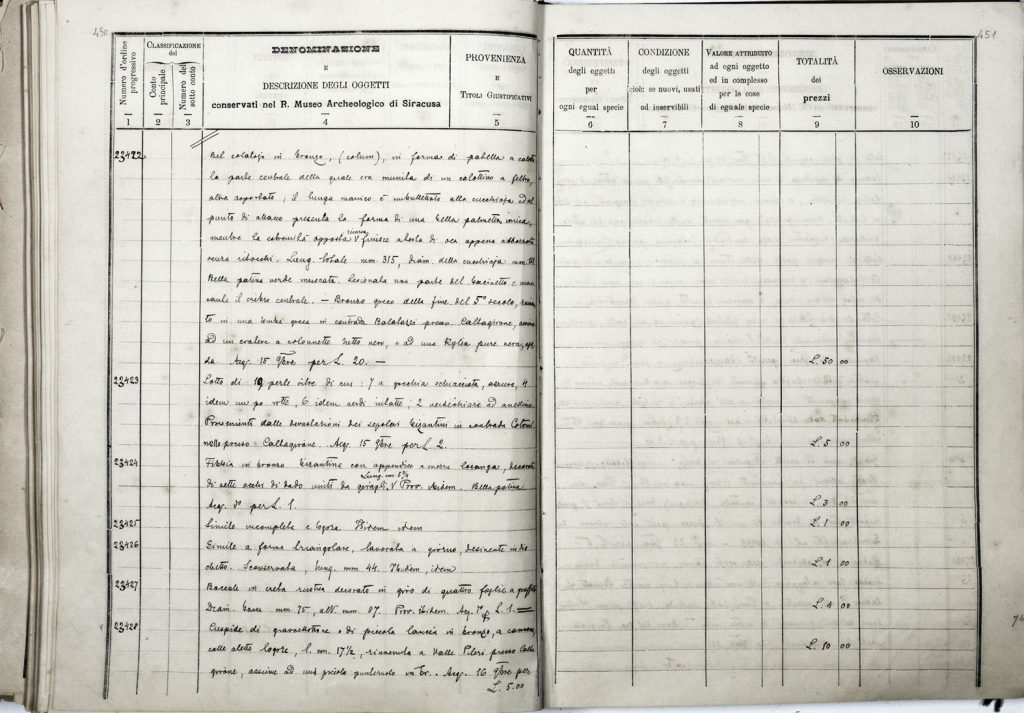 450
Numero d'ordine progressivo
CLASSIFICAZIONE del
Conto principale
Numero del sotto conto
DENOMINAZIONE
E
DESCRIZIONE DEGLI OGGETTI
conservati nel R. Museo Archeologico di Siracusa
PROVENIENZA
E
TITOLI GIUSTIFICATIVI
1 2 3 4 5
23422
Bel colatojo in bronzo, (colum), in forma di padella a
la parte centrale della quale era munita di un a feltro,
altra ; il lungo manico è alla cucchiaja ed al
punto di attacco presenta la forma di una bella palmetta ionica,
mentre la estremità opposta finisce a testa di oca appena abbozzata
senza ritocchi. Lung. totale mm 315, diam. della cucchiaja mm.
Bella patina verde muscata. Lesionata una parte del bacinetto e man
cante il centrale. — Bronzo greco della fine del 5° secolo,
to in una tomba greca in contrada presso Caltagirone,
ad un cratere a colonnette tutto nero, e ad una pure nera,
da. Acq. 15 9bre per L. 20. —
23423
Lotto di 19 perle vitree di cui: 7 a schiacciata, azzurre, 4
idem un po rotte, 6 idem verdi intatte; 2 ad anellino
Provenienti dalle devastazioni dei sepolcri bizantini in contrada
presso Caltagirone. Acq. 15 9bre per L. 2.
23424
Fibbia in bronzo bizantina con appendice a mezza losanga,
di sette occhi di dado uniti da Prov. ibidem. Bella patina
Acq. d° per L. 1.
23425
Simile incompleta e logora. Ibidem idem
23426
Simile a forma triangolare, lavorata a giorno, desinente in
chetto. Sconservata, lung. mm. 44. Ibidem, idem
23427
Boccale in creta rustica decorato in giro di quattro foglie a
Diam. bocca mm. 75, alt. mm. 87. Prov. ibidem. Acq. d° L. 1.
23428
Cuspide di giavellottone o di piccola lancia in bronzo, a cannone,
colle alette logore, l. cm. 17½, rinvenuta a Valle presso Calta
girone, assieme ad un piccolo punteruolo in br. . Acq. 16 9bre per
L. 5.00
451
QUANTITÀ
degli oggetti
per
ogni egual specie
CONDIZIONE
degli oggetti
cioè: se nuovi, usati
od inservibili
VALORE ATTRIBUITO
ad ogni oggetto
ed in complesso
per le cose
di eguale specie
TOTALITÀ
dei
prezzi
OSSERVAZIONI
6 7 8 9 10
L. 50 00
L. 5 00
L. 3 00
L. 1 00
L. 1 00
L. 4 00
L. 10 00